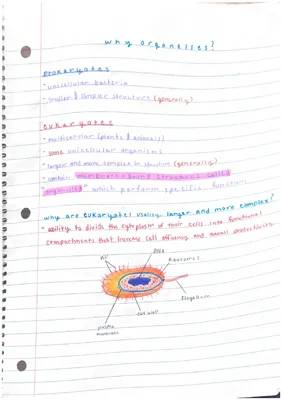 why organelles?
prokaryotes
- unicellular bacteria
- smaller & simpler structure (generally)
eukaryotes
- multicellular (plants & animals)
- some unicellular organisms
- larger and more complex in structure (generally)
- contain membrane-bound structures called
"organelles" which perform specific functions
why are eukaryotes usually larger and more complex?
* ability to divide the cytoplasm of their cells into functional
compartments that increase cell efficiency and overall
Pili
DNA
Ribosomes
flagellum
cell wall
plasma
membrane